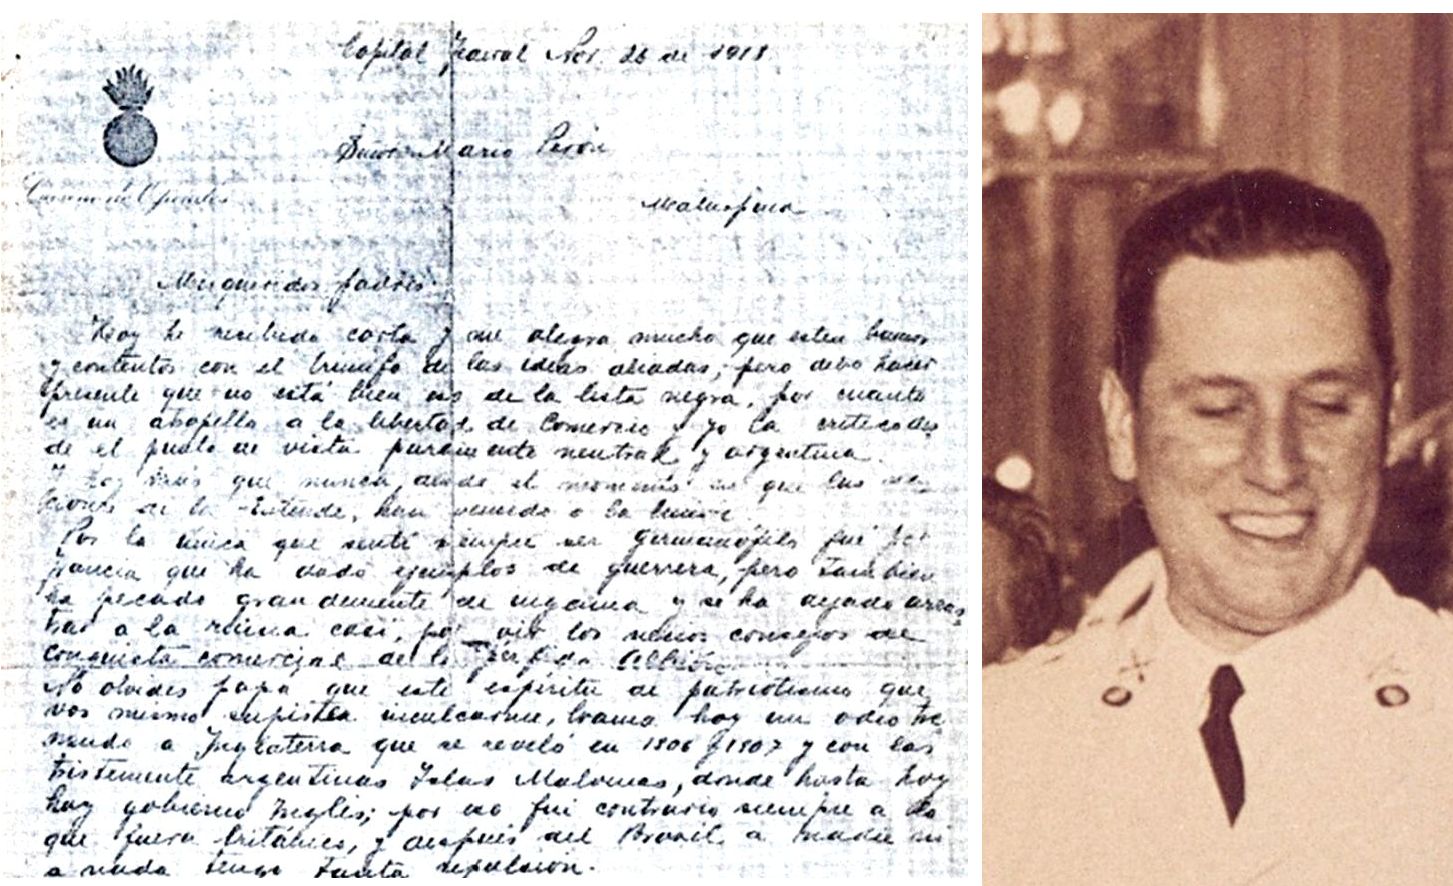 Capital Federal Nov. 26 de 1918.
Señor Mario Perón
Malaspina
Casino de Oficiales
Mis queridos padres:
Hoy he recibido carta y me alegra mucho que esten buenos
y contentos con el triunfo de las ideas aliadas; pero debo hacer
presente que no está bien eso de la lista negra, por cuanto
es un atropello a la libertad de Comercio y yo la critico des
de el punto de vista puramente neutral y argentina.
Y hoy más que nunca, desde el momento en que las
de la Entende, han vencido a la
Por lo único que sentí siempre ser germanófilo fué
que ha dado ejemplos de guerrera, pero tambien
ha pecado grandemente de ingenua y se ha dejado arras
trar a la ruina casi, por oir los necios consejos de
conquista comercial de la "perfida Albión".
No olvides papá que este espíritu de patriotismo que
vos mismo supistes inculcarme, brama hoy un odio tre
mendo a Inglaterra que se reveló en 1806 y 1807 y con las
tristemente argentinas Islas Malvinas, donde hasta hoy
hay gobierno Inglés; por eso fui contrario siempre a lo
que fuera británico, y después del Brasil a nadie ni
a nada tengo tanta repulsión.